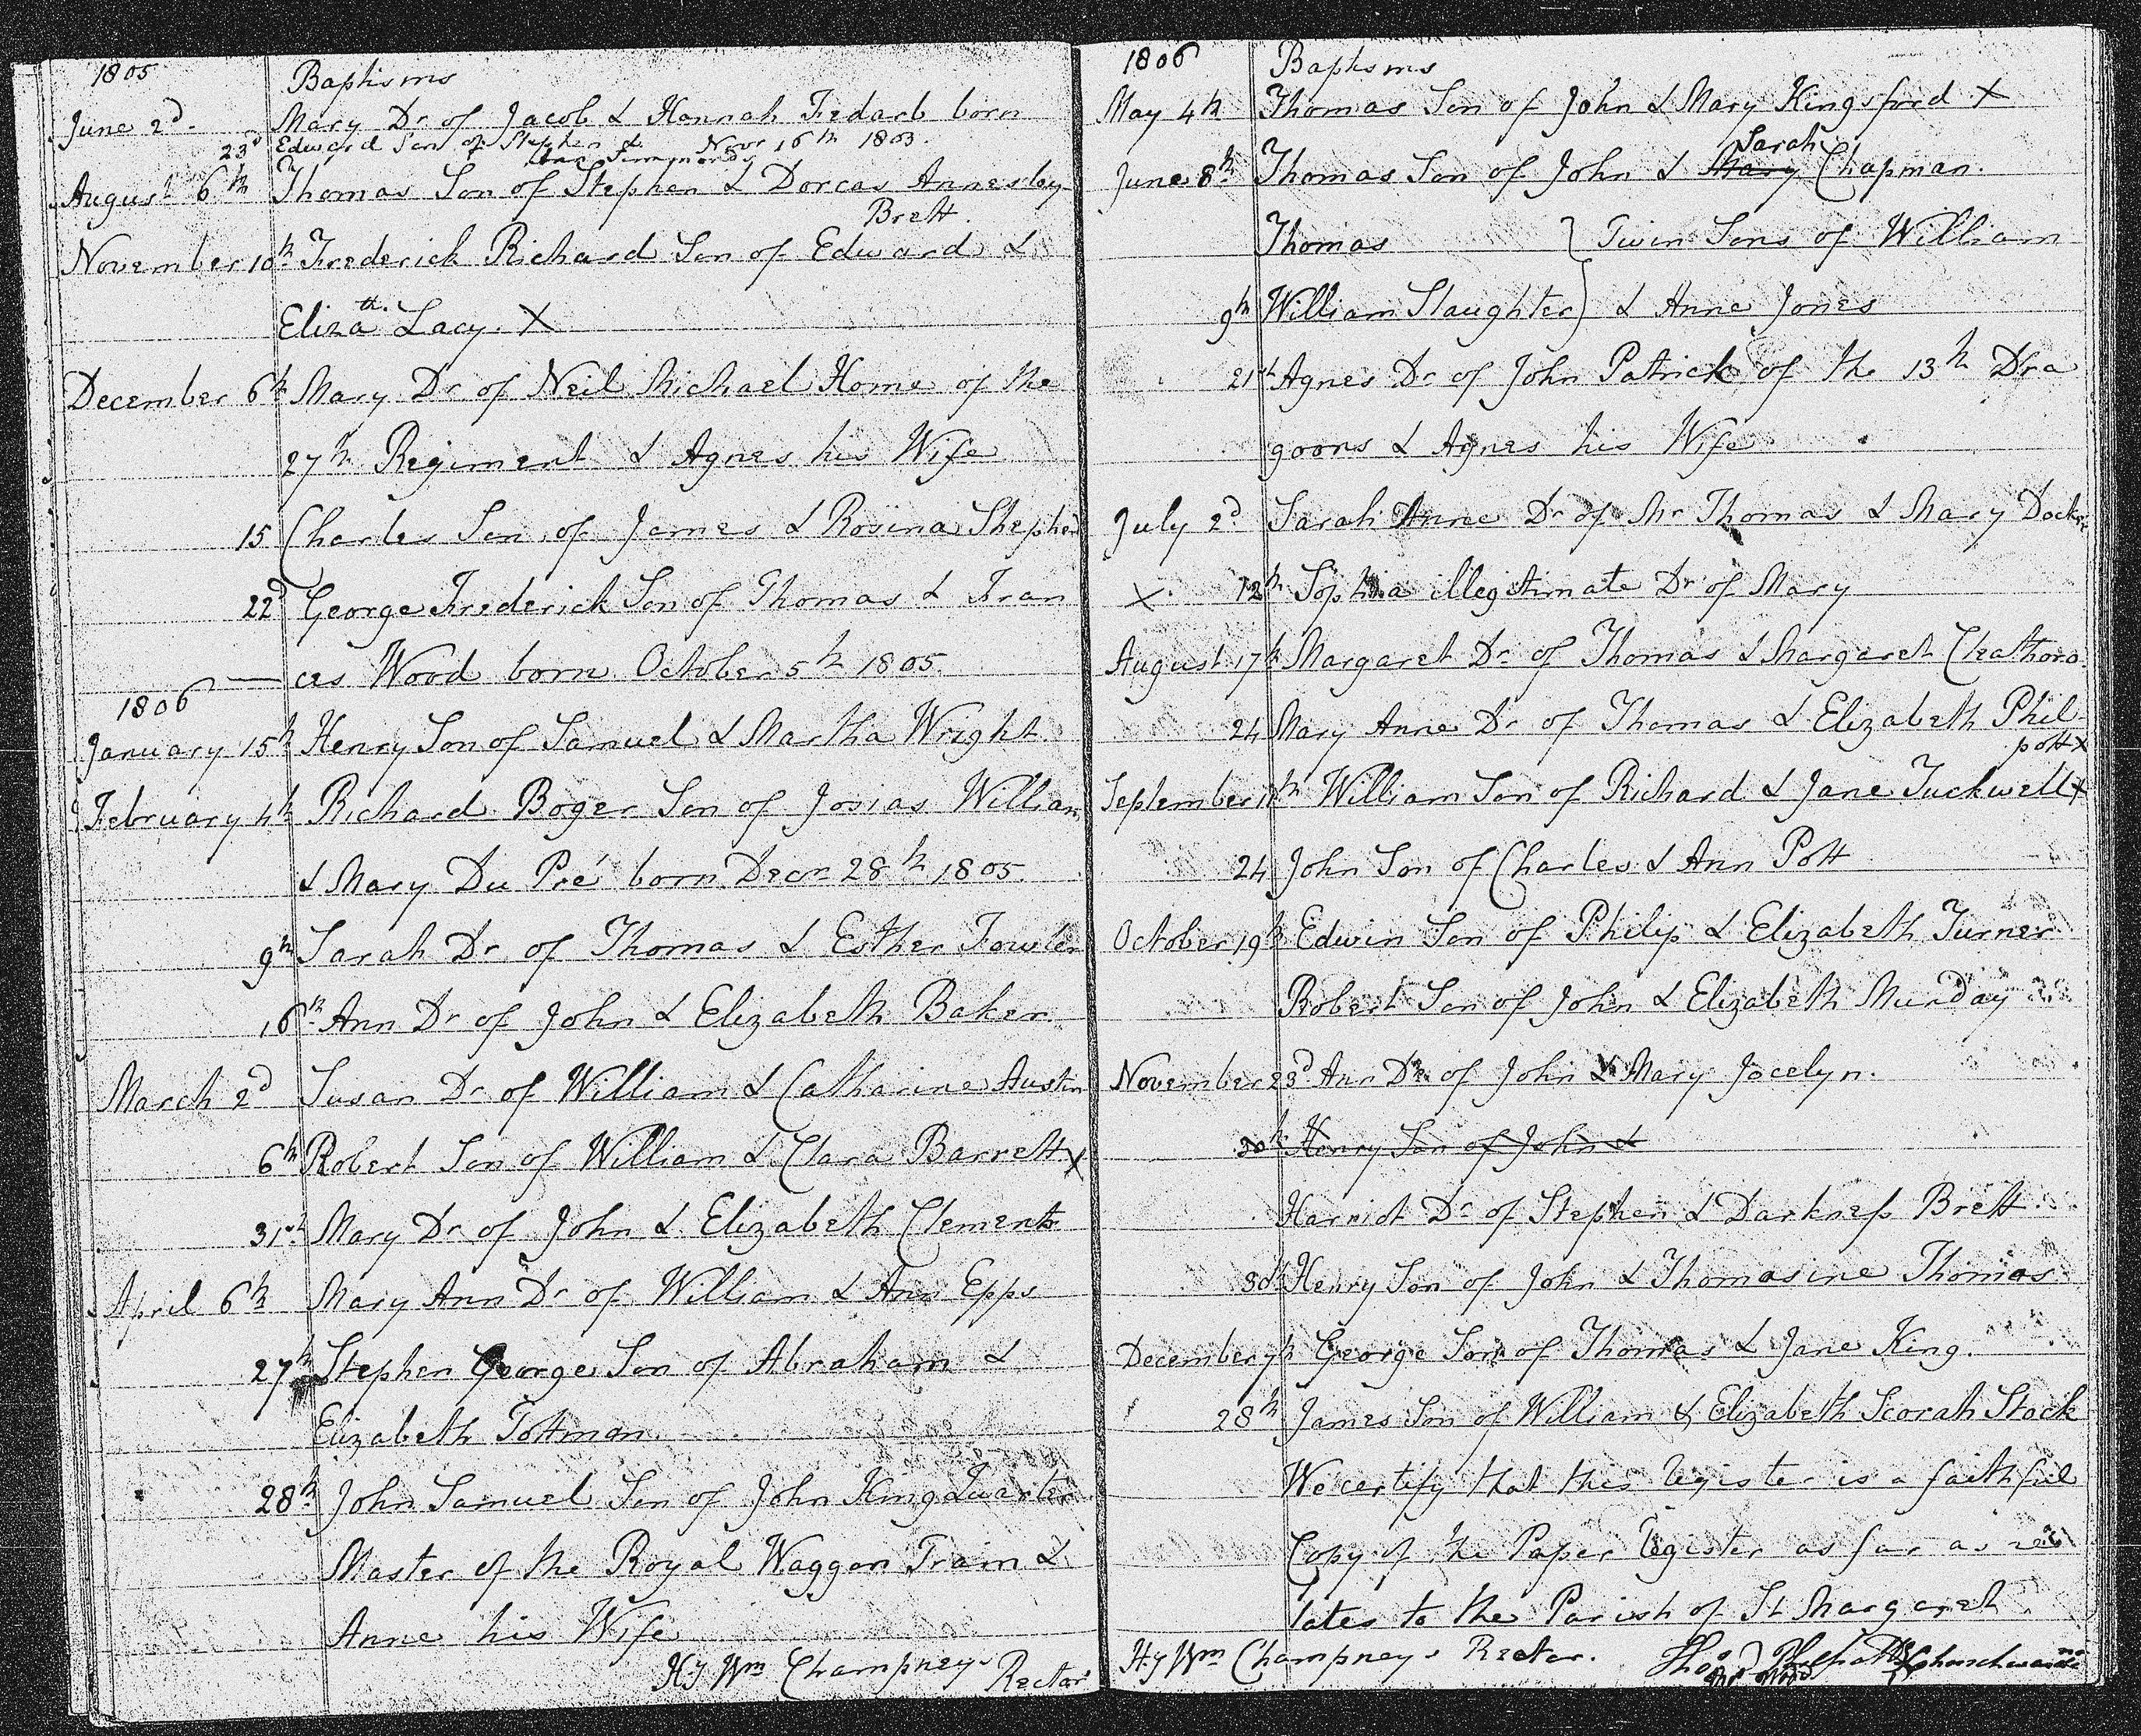 1805
Baptisms
June 2d. Mary Dr of Jacob & Hannah Fedarb born
Novr 16th 1803.
23d Edward Son of Stephen &
Ann Simmonds
August 6th Thomas Son of Stephen & Dorcas Annesley
Brett.
November 10th Frederick Richard Son of Edward &
Elizath. Lacy. X
December 6th Mary Dr of Neil Michael Home of the
27th Regiment & Agnes his Wife
15 Charles Son of James & Rosina Shepherd
22d George Frederick Son of Thomas & Fran
ces Wood born October 5th 1805.
1806
January 15th Henry Son of Samuel & Martha Wright
February 4th Richard Boger Son of Josias William
& Mary Du Pré born Decr 28th 1805.
9th Sarah Dr of Thomas & Esther Fowler
16th Ann Dr of John & Elizabeth Baker.
March 2d Susan Dr of William & Catharine Austin
6th Robert Son of William & Clara Barrett X
31st Mary Dr of John & Elizabeth Clement
April 6th Mary Ann Dr of William & Ann Epps
27th Stephen George Son of Abraham &
Elizabeth Tottman.
28th John Samuel Son of John King Quarter
Master of the Royal Waggon Train &
Anne his Wife
Hy Wm Champneys Rector
1806
Baptisms
May 4th Thomas Son of John & Mary Kingsford X
Sarah
June 8th Thomas Son of John & Mary Chapman.
Thomas } Twin Sons of William
9th William Slaughter } & Anne Jones
21st Agnes Dr of John Patrick of the 13th Dra
goons & Agnes his Wife
July 2d Sarah Anne Dr of Mr Thomas & Mary Docker
X. 12th Sophia illegitimate Dr of Mary
August 17th Margaret Dr of Thomas & Margaret Cheathoro
24 Mary Anne Dr of Thomas & Elizabeth Phil-
pott X
September 11th William Son of Richard & Jane Tuckwell X
24 John Son of Charles & Ann Pott
October 19th Edwin Son of Philip & Elizabeth Turner
Robert Son of John & Elizabeth Munday
November 23d Ann Dr of John & Mary Jocelyn.
30th Henry Son of John &
Harriot Dr of Stephen & Darkness Brett.
30th Henry Son of John & Thomasine Thomas.
December 7th George Son of Thomas & Jane King.
28th James Son of William & Elizabeth Scorah Stock
We certify that this register is a faithful
Copy of the Paper register as far as re
lates to the Parish of St Margaret
Hy Wm Champneys Rector. Thos Philpott Churchwarden